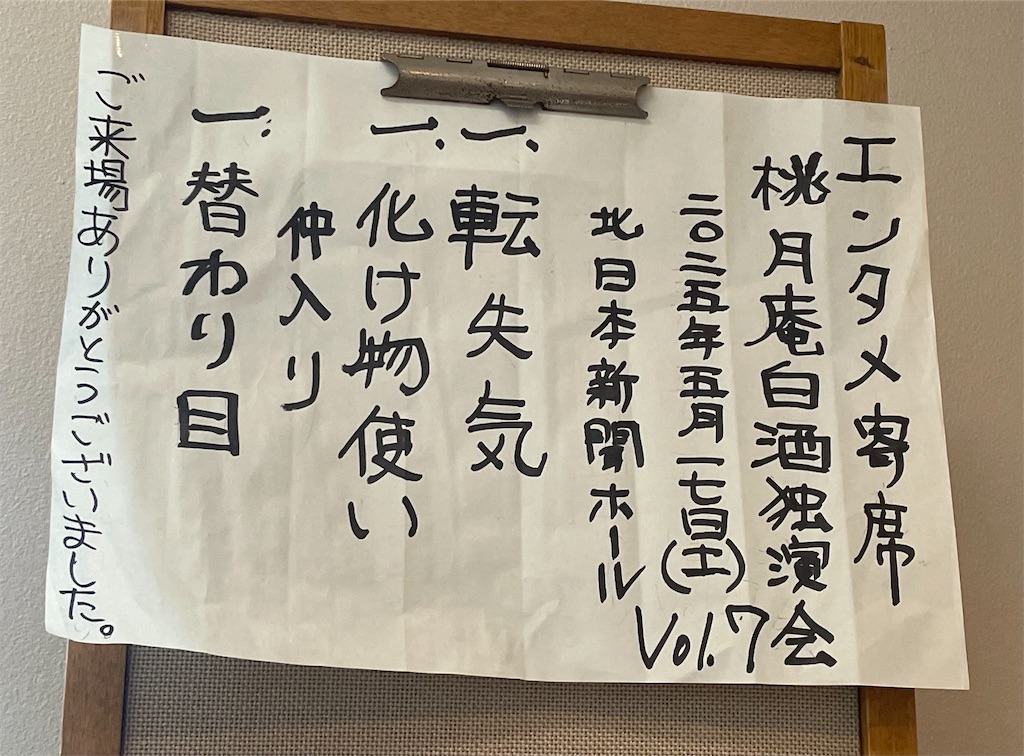 エンタメ寄席
桃月庵白酒独演会
Vol.7
二〇二五年五月一七日(土)
北日本新聞ホール
一、転失気
一、化け物使い
仲入り
一、替わり目
ご来場ありがとうございました。